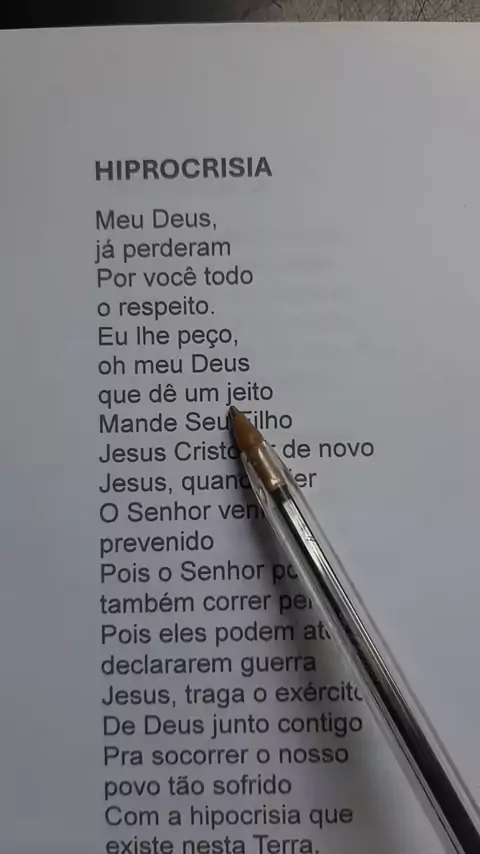 HIPROCRISIA
Meu Deus,
já perderam
Por você todo
o respeito.
Eu lhe peço,
oh meu Deus
que dê um jeito
Mande Seu Filho
Jesus Cristo de novo
Jesus, quando
O Senhor
prevenido
Pois o Senhor
também correr
Pois eles podem até
declararem guerra
Jesus, traga o exército
De Deus junto contigo
Pra socorrer o nosso
povo tão sofrido
Com a hipocrisia que
existe nesta Terra.